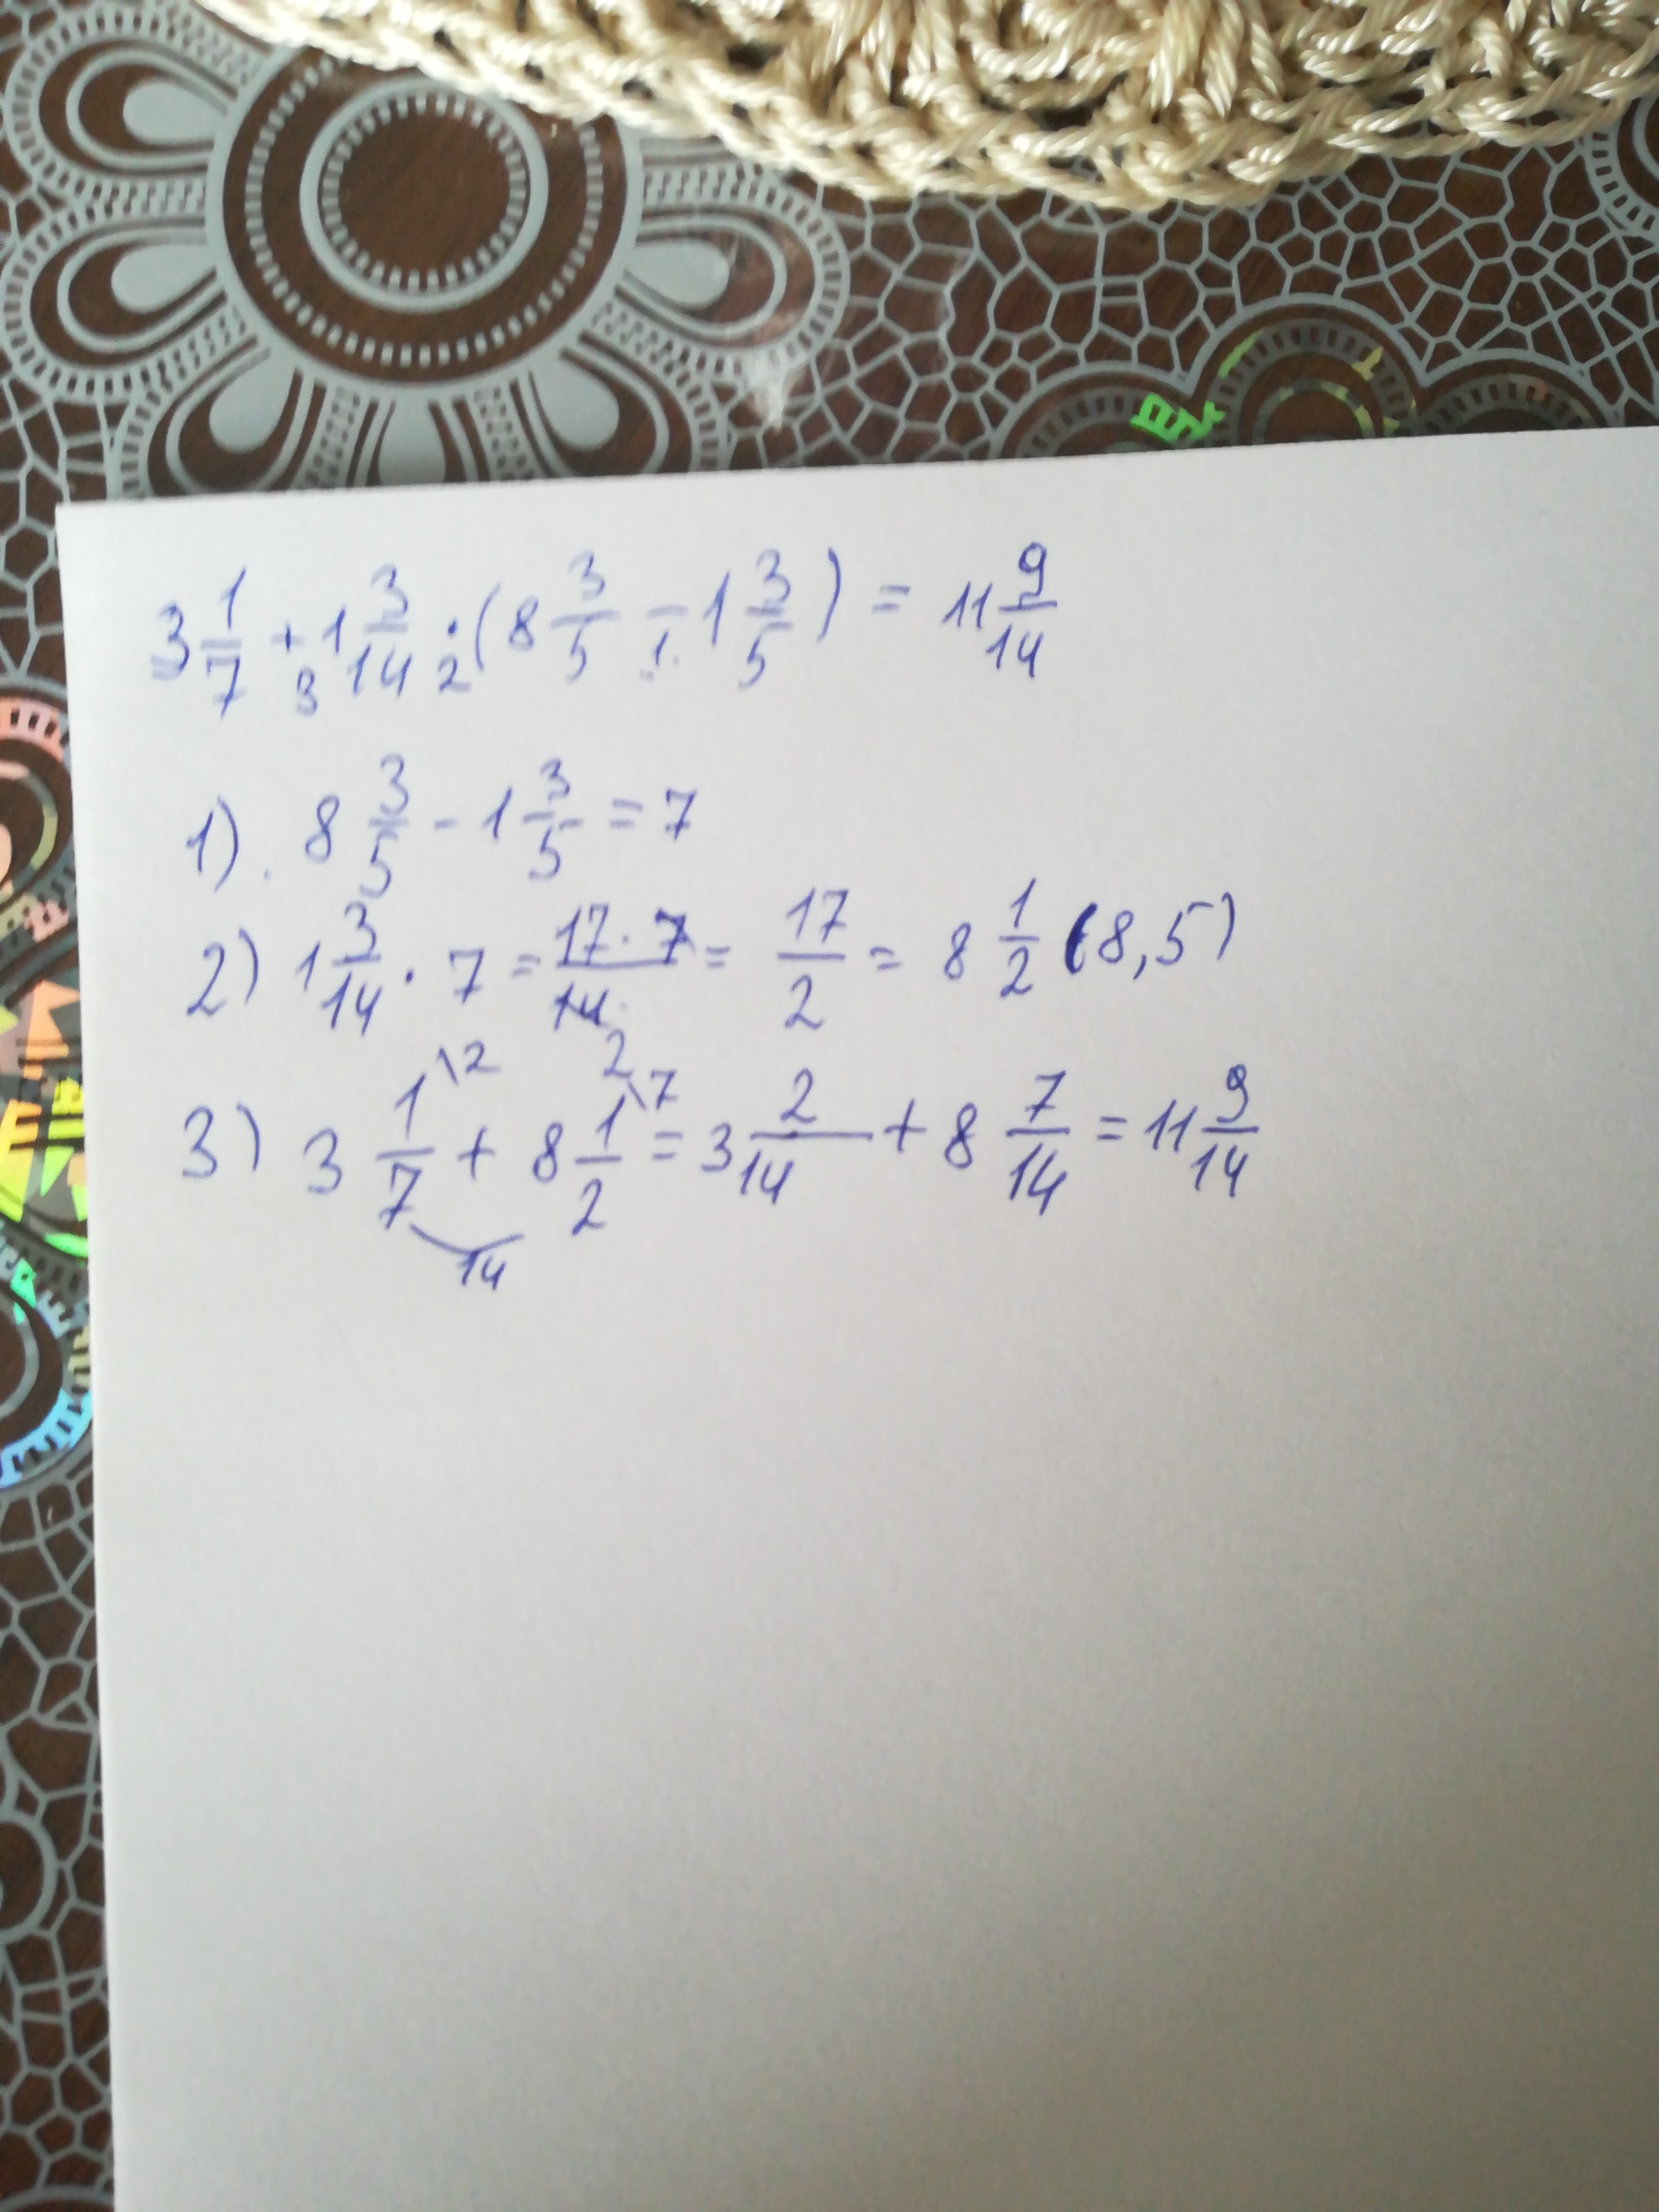 3 1/7 + 1 3/14 · (8 3/5 - 1 3/5) = 11 9/14
3 2 1
1). 8 3/5 - 1 3/5 = 7
2) 1 3/14 · 7 = 17·7/14 = 17/2 = 8 1/2 (8,5)
2
\2 \7
3) 3 1/7 + 8 1/2 = 3 2/14 + 8 7/14 = 11 9/14
14